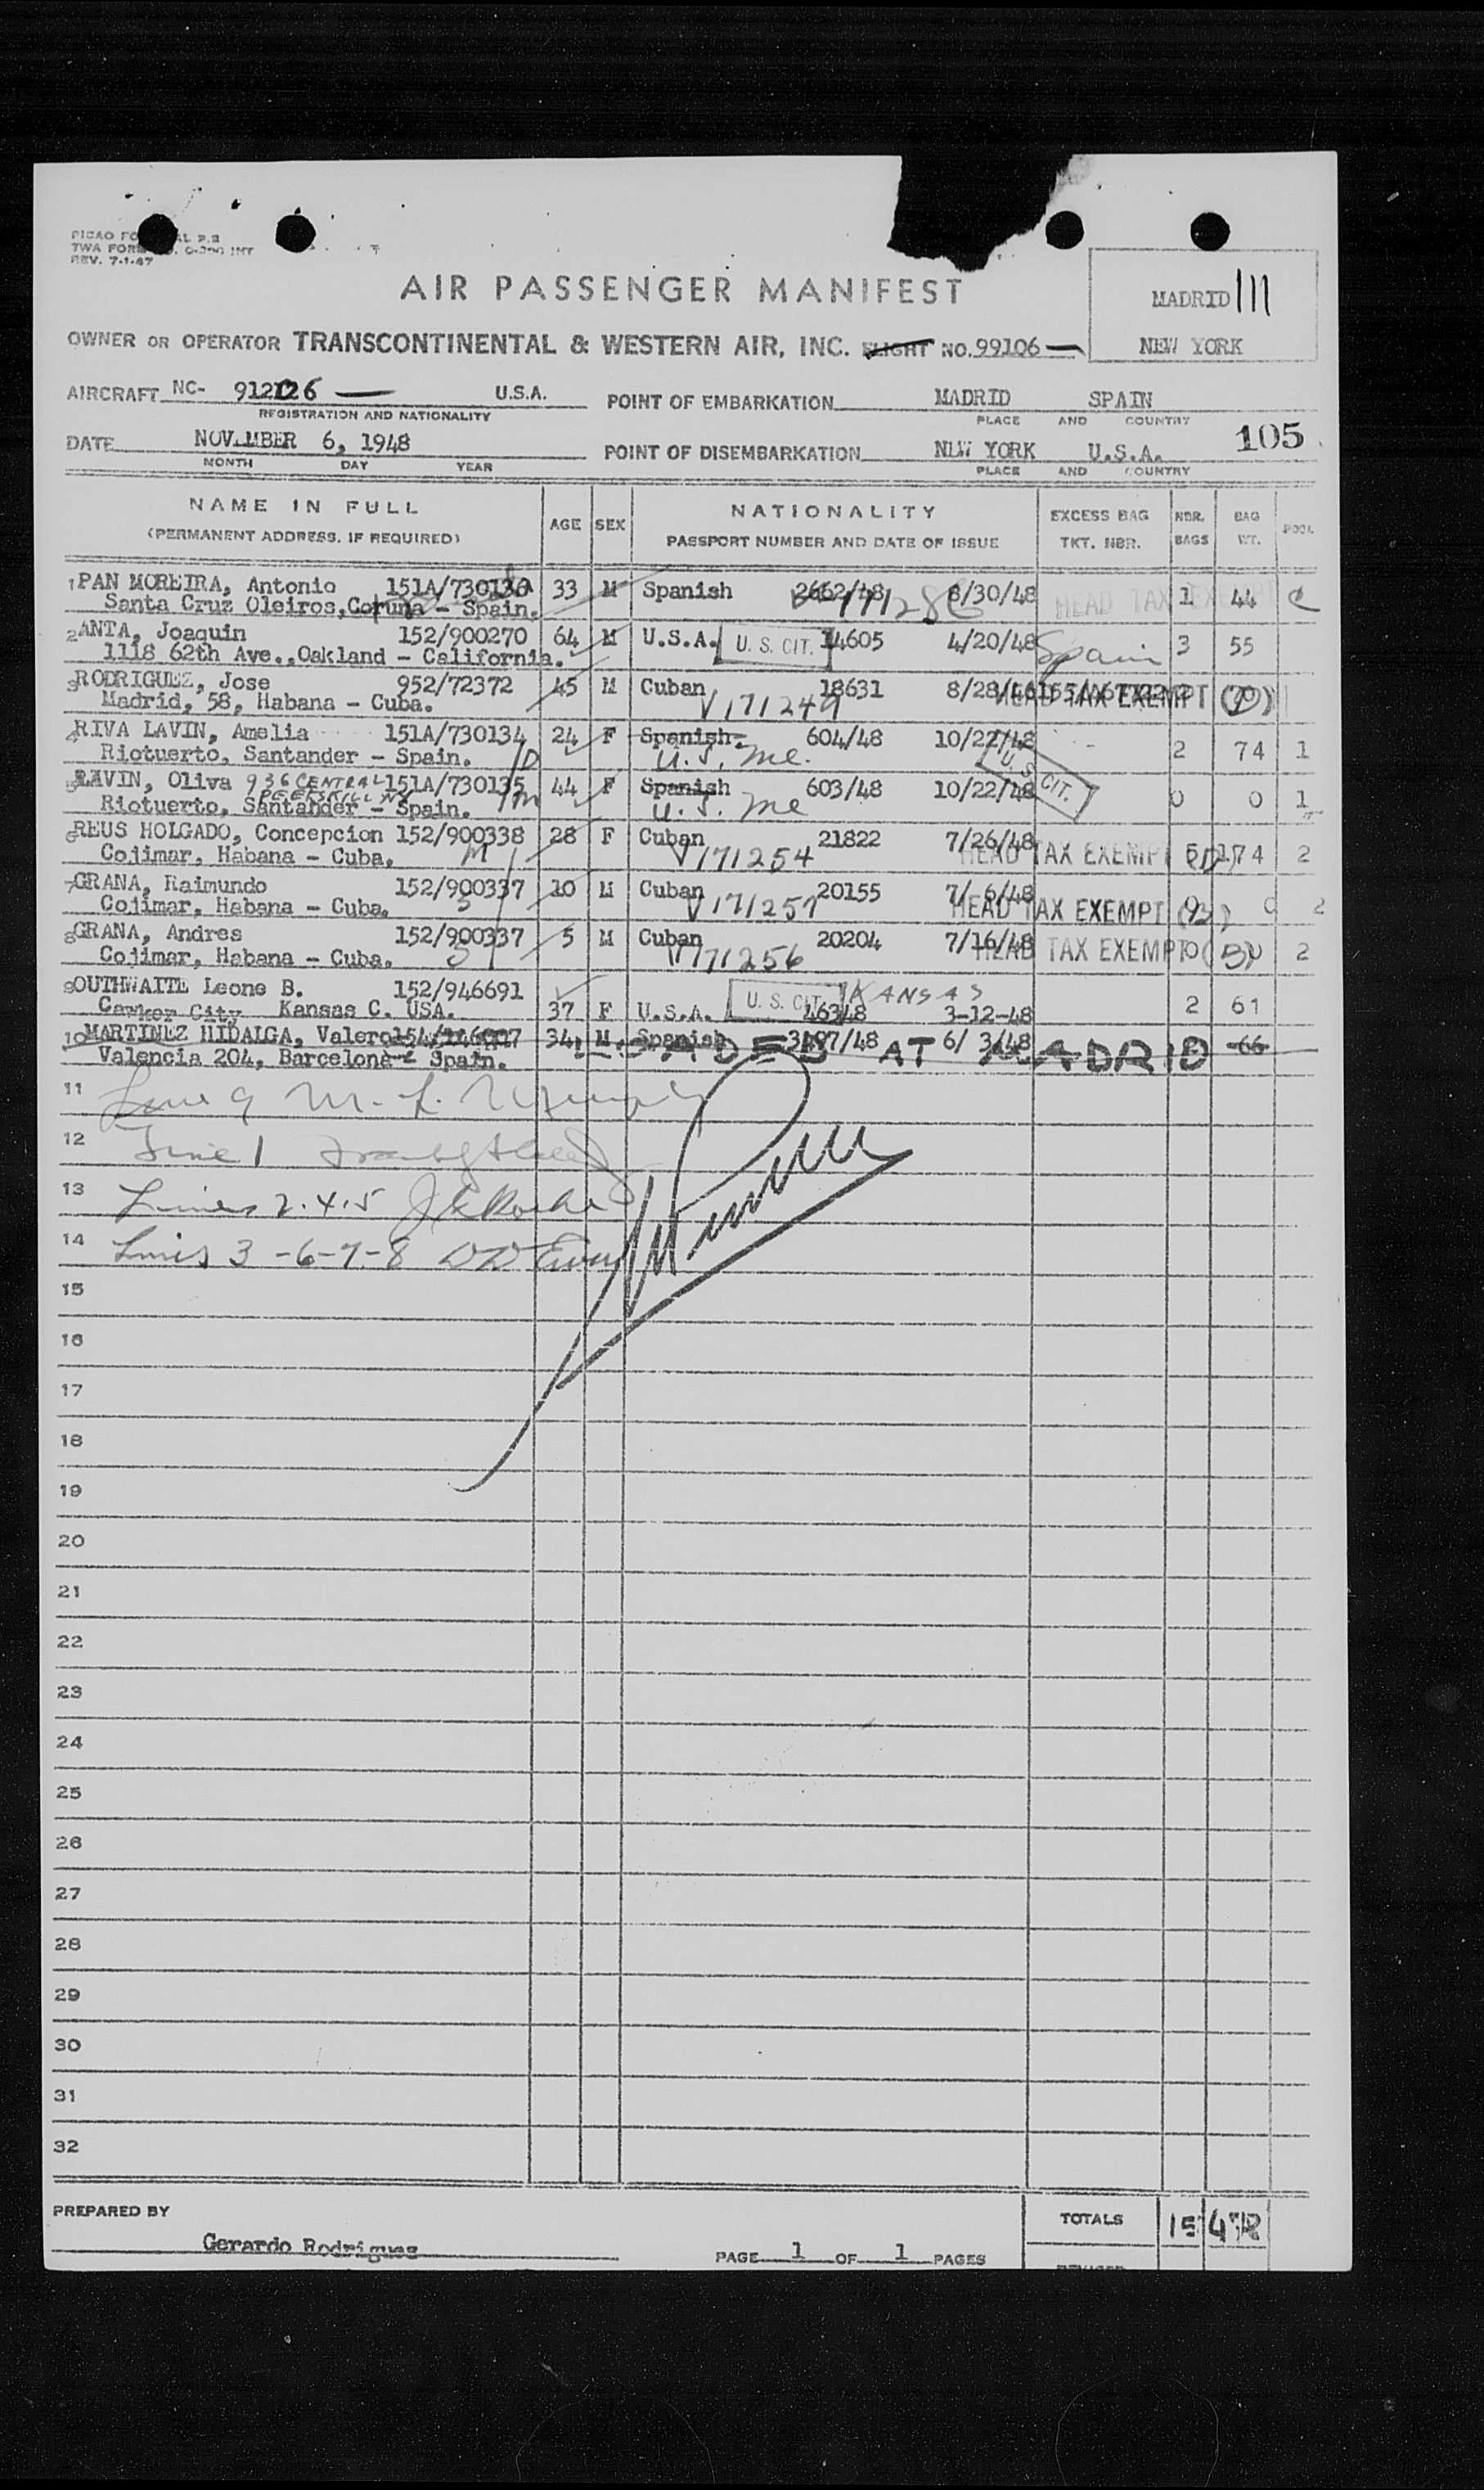 REV. 7-1-47
AIR PASSENGER MANIFEST
MADRID
NEW YORK
OWNER OR OPERATOR TRANSCONTINENTAL & WESTERN AIR, INC. FLIGHT NO. 99106
AIRCRAFT NC- U.S.A.
REGISTRATION AND NATIONALITY
POINT OF EMBARKATION MADRID SPAIN
PLACE AND COUNTRY
DATE NOVEMBER 6, 1948
MONTH DAY YEAR
POINT OF DISEMBARKATION NEW YORK U.S.A.
PLACE AND COUNTRY
105
NAME IN FULL AGE SEX NATIONALITY EXCESS BAG NBR. BAG POOL
(PERMANENT ADDRESS, IF REQUIRED) PASSPORT NUMBER AND DATE OF ISSUE TKT. NBR. BAGS WT.
1 PAN MOREIRA, Antonio 33 M Spanish 2662/48 8/30/48 HEAD TAX EXEMPT 1 44
Santa Cruz Oleiros, Coruna - Spain.
2 ANTA, Joaquin 152/900270 64 M U.S.A. U. S. CIT. 14605 4/20/48 Spain 3 55
1118 62th Ave., Oakland - California.
3 RODRIGUEZ, Jose 952/72372 45 M Cuban 18631 HEAD TAX EXEMPT
Madrid, 58, Habana - Cuba. V171249
4 RIVA LAVIN, Amelia 151A/730134 24 F Spanish 604/48 10/22/48 2 74 1
Riotuerto, Santander - Spain. U. S. CIT.
5 LAVIN, Oliva 936 CENTRAL 151A/730135 44 F Spanish 603/48 10/22/48 0 0 1
PEEKSKILL NY
Riotuerto, Santander - Spain.
6 REUS HOLGADO, Concepcion 152/900338 28 F Cuban 21822 7/26/48 74 2
Cojimar, Habana - Cuba. M V171254 HEAD TAX EXEMPT
7 GRANA, Raimundo 152/900337 10 M Cuban 20155 7/ 6/48
Cojimar, Habana - Cuba. S V171257 HEAD TAX EXEMPT 0 2
8 GRANA, Andres 152/900337 5 M Cuban 20204 7/16/48
Cojimar, Habana - Cuba. S V171256 HEAD TAX EXEMPT 0 2
9 OUTHWAITE Leone B. 152/946691 U. S. CIT. KANSAS
Cawker City Kansas C. USA. 37 F U.S.A. 46348 3-12-48 2 61
10 MARTINEZ HIDALGA, Valero 34 M Spanish 6/ 3/48 66
Valencia 204, Barcelona - Spain. AT MADRID
11 Line 9
12 Line 1
13 Lines 2.4.5
14 Lines 3-6-7-8
15
16
17
18
19
20
21
22
23
24
25
26
27
28
29
30
31
32
PREPARED BY
Gerardo Rodriguez
PAGE 1 OF 1 PAGES
TOTALS 15